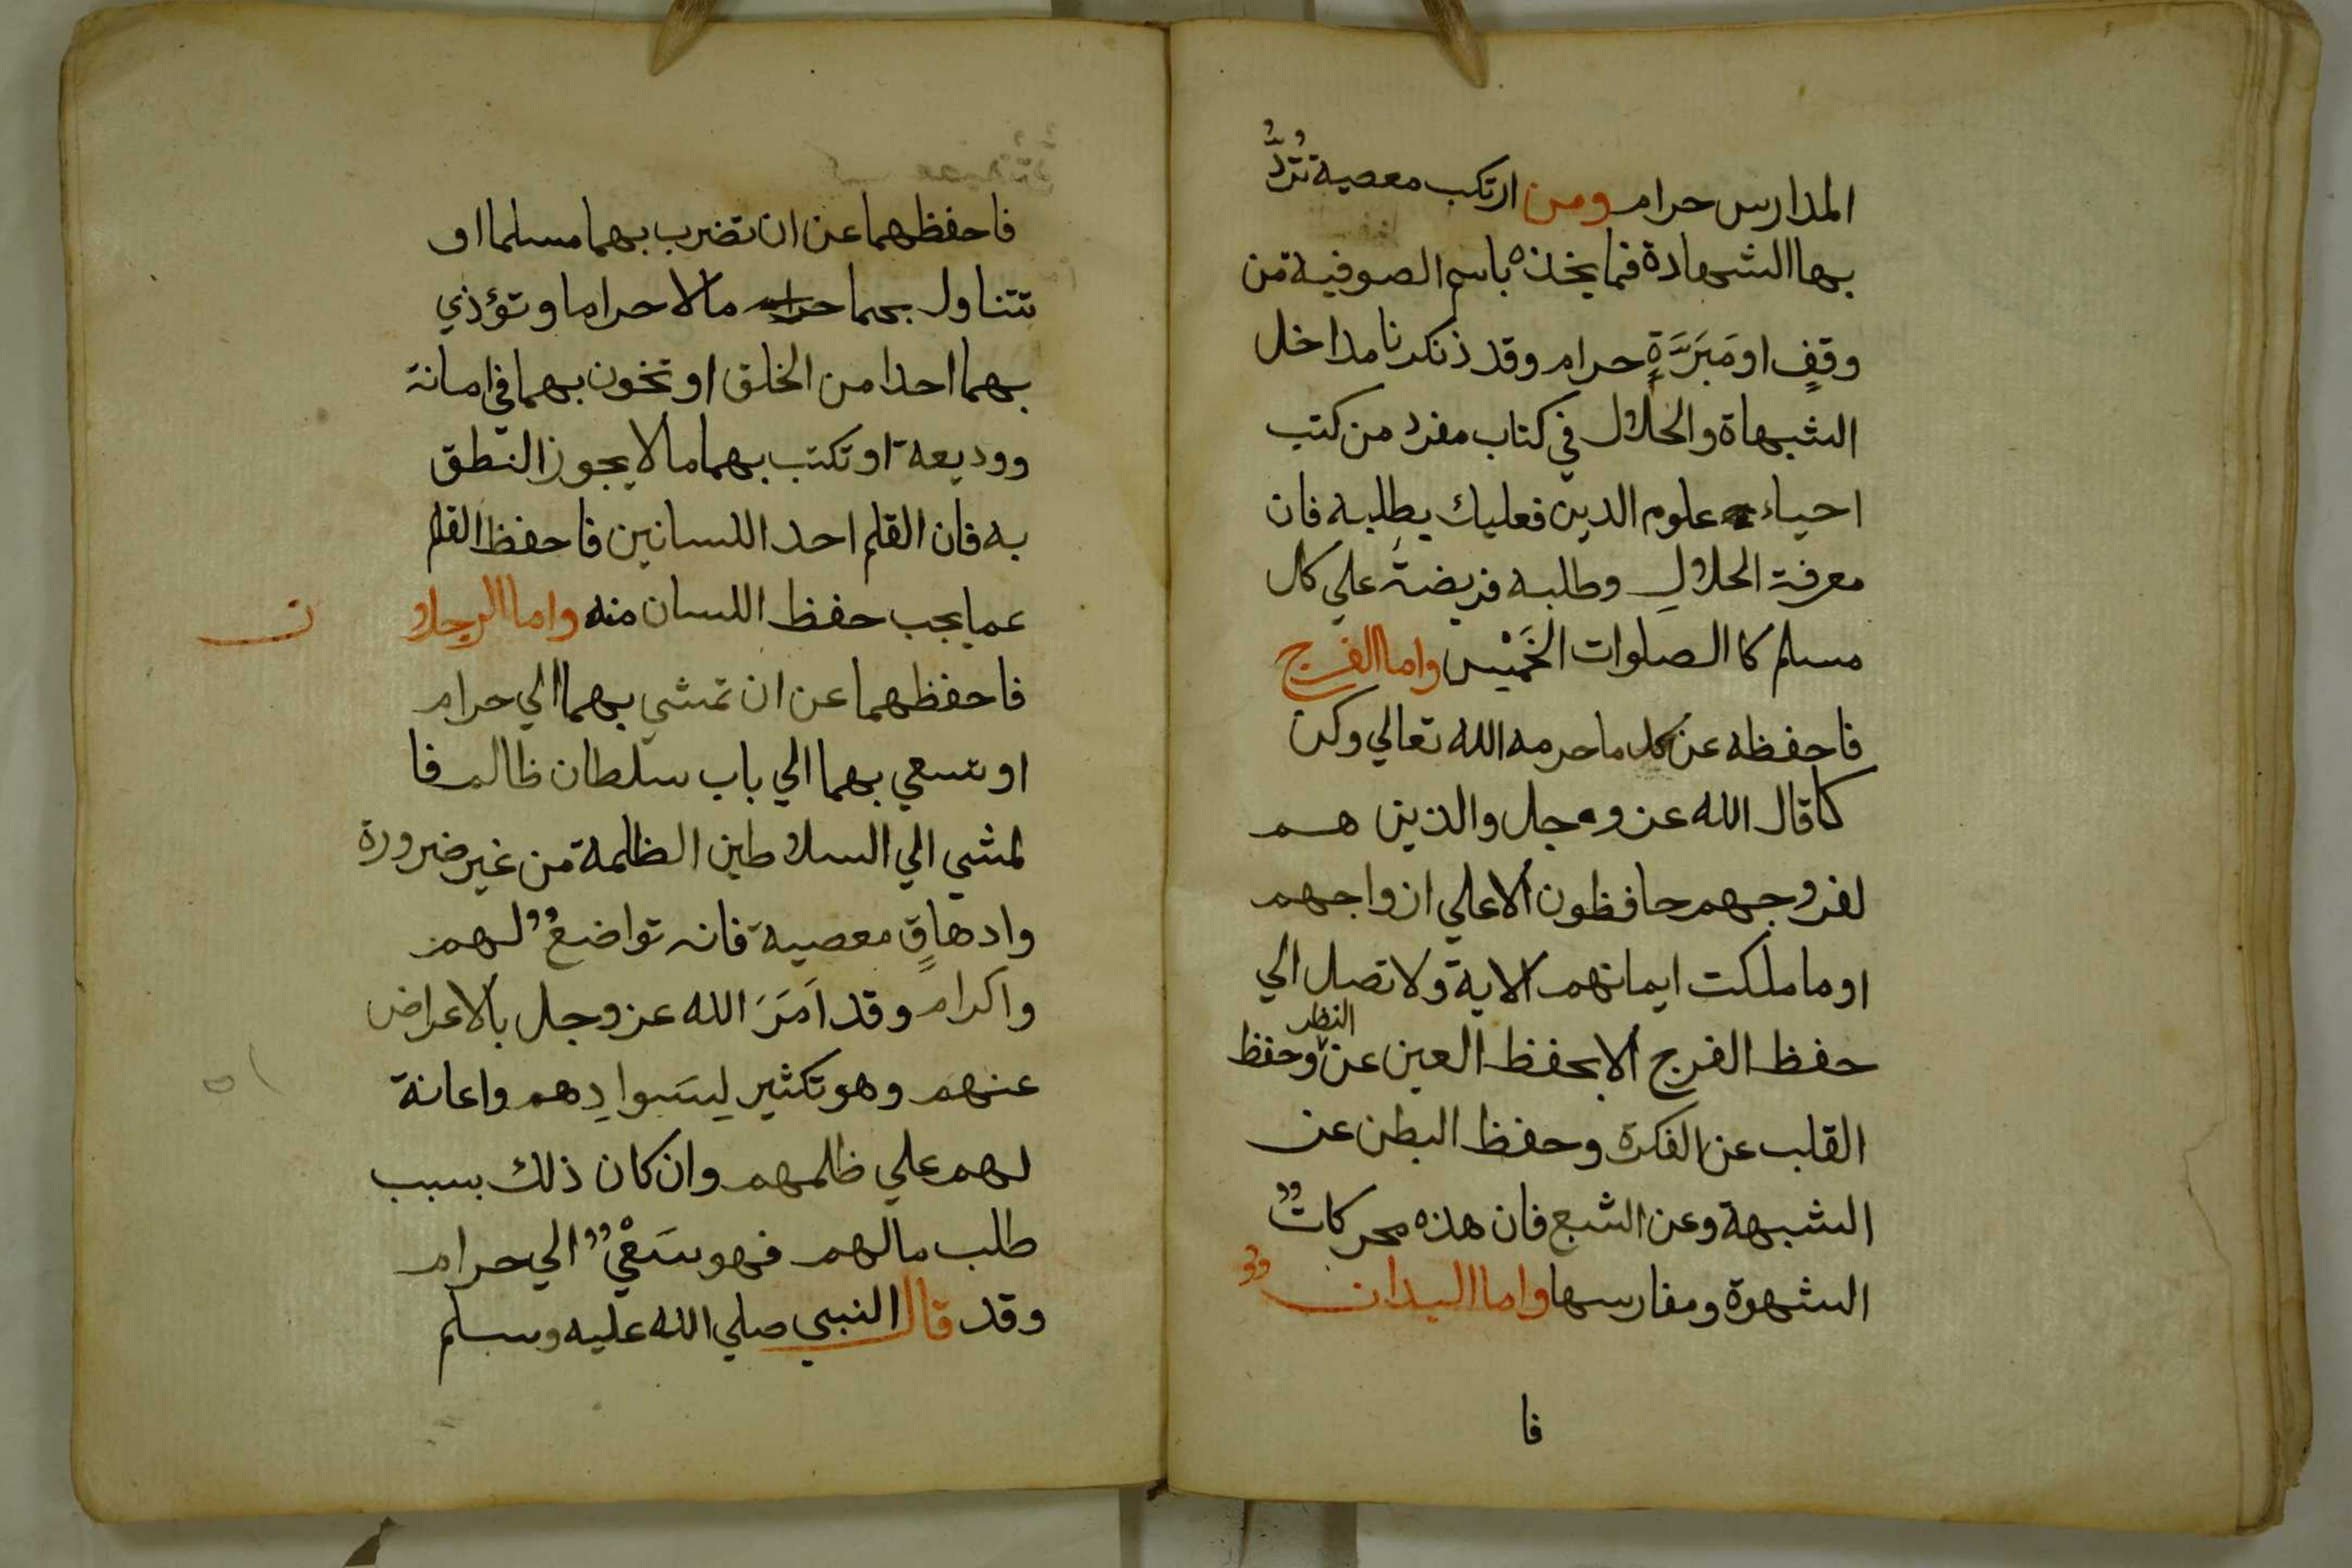 المدارس حرام ومن ارتكب معصية تردُّ
بها الشهادة فما يخذه باسم الصوفية من
وقفٍ او مَبَرَّةٍ حرام وقد ذكرنا مداخل
الشبهاة والحلال في كتاب مفرد من كتب
احياء علوم الدين فعليك بطلبه فان
معرفة الحلالِ وطلبه فريضة علي كل
مسلم كا الصلوات الخَمْس واما الفرج
فاحفظه عن كل ما حرمه الله تعالي وكن
كما قال الله عز وجل والذين هم
لفروجهم حافظون الا علي ازواجهم
او ما ملكت ايمانهم الاية ولا تصل الي
حفظ الفرج الا بحفظ العين عن النظر وحفظ
القلب عن الفكرة وحفظ البطن عن
الشبهة وعن الشبع فان هذه محركاتٌ
الشهوة ومغارسها واما اليدان
فا
فاحفظهما عن ان تضرب بهما مسلما او
تتناول بهما مالا حراما و تؤذي
بهما احدا من الخلق او تخون بهما في امانة
ووديعة او تكتب بهما ما لا يجوز النطق
به فان القلم احد اللسانين فاحفظ القلم
عما يجب حفظ اللسان منه واما الرجلا ن
فاحفظهما عن ان تمشي بهما الي حرام
او تسعي بهما الي باب سلطان ظالم فا
لمشي الي السلاطين الظلمة من غير ضرورة
وادهاقٍ معصية فانه تواضعٌ لهم
واكرام وقد اَمَرَ الله عز وجل بالاعراض
عنهم وهو تكثير لِسَوادِهم واعانة
لهم علي ظلمهم وان كان ذلك بسبب
طلب مالهم فهو سَعْيٌ الي حرام
وقد قال النبي صلي الله عليه وسلم